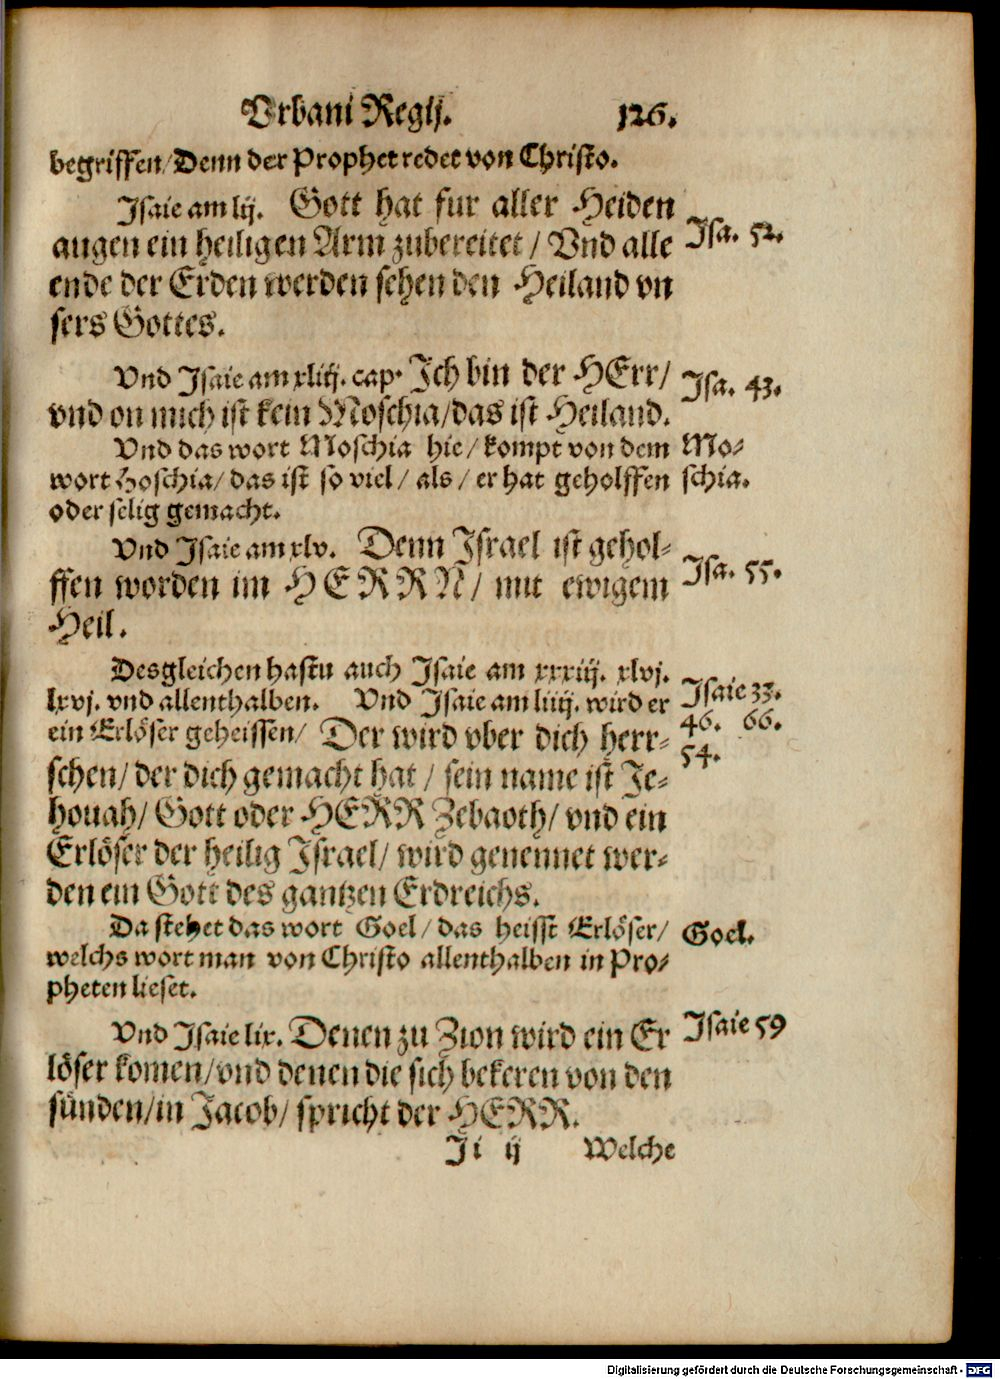 Vrbani Regij. 126.
begriffen/Denn der Prophet redet von Christo.
Isaie am lij. Gott hat fur aller Heiden
augen ein heiligen Arm zubereitet / Vnd alle
ende der Erden werden sehen den Heiland vn
sers Gottes.
Isa. 52.
Vnd Isaie am xliij. cap. Ich bin der HErr/
vnd on mich ist kein Moschia/das ist Heiland.
Isa. 43.
Vnd das wort Moschia hie/ kompt von dem
wort Hoschia/ das ist so viel/ als/ er hat geholffen
oder selig gemacht.
Mo-
schia.
Vnd Isaie am xlv. Denn Israel ist gehol-
ffen worden im HERRN/ mit ewigem
Heil.
Isa. 55.
Desgleichen hastu auch Isaie am xxxiij. xlvj.
lxvj. vnd allenthalben. Vnd Isaie am liiij. wird er
ein Erlöser geheissen/ Der wird vber dich herr-
schen/ der dich gemacht hat / sein name ist Je-
houah/ Gott oder HERR Zebaoth/ vnd ein
Erlöser der heilig Israel/ wird genennet wer-
den ein Gott des gantzen Erdreichs.
Isaie 33.
46. 66.
54.
Da stehet das wort Goel/ das heisst Erlöser/
welchs wort man von Christo allenthalben in Pro-
pheten lieset.
Goel.
Vnd Isaie lix. Denen zu Zion wird ein Er
löser komen/vnd denen die sich bekeren von den
sünden/in Jacob/ spricht der HERR.
Isaie 59
Ji ij Welche
Digitalisierung gefördert durch die Deutsche Forschungsgemeinschaft - DFG